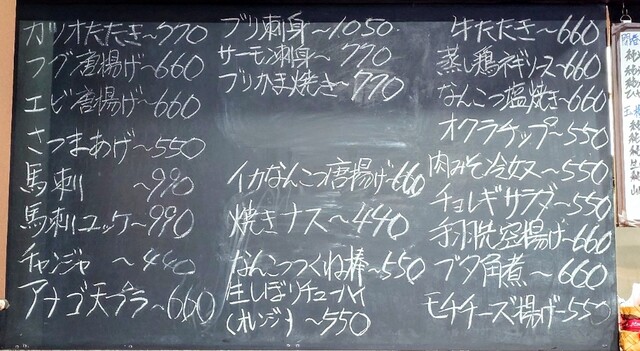 カツオたたき〜770
フグ唐揚げ〜660
エビ唐揚げ〜660
さつまあげ〜550
馬刺 〜990
馬刺ユッケ〜990
チャンジャ 〜440
アナゴ天プラ〜660
ブリ刺身〜1050
サーモン刺身〜770
ブリかま焼き〜770
イカなんこつ唐揚げ〜660
焼きナス〜440
なんこつつくね棒〜550
生しぼりチューハイ
(オレンジ)〜550
牛たたき〜660
蒸し鶏ネギソース〜660
なんこつ塩焼き〜660
オクラチップ〜550
肉みそ冷奴〜550
チョレギサラダ〜550
手羽先空揚げ〜660
ブタ角煮〜660
モチチーズ揚げ〜550